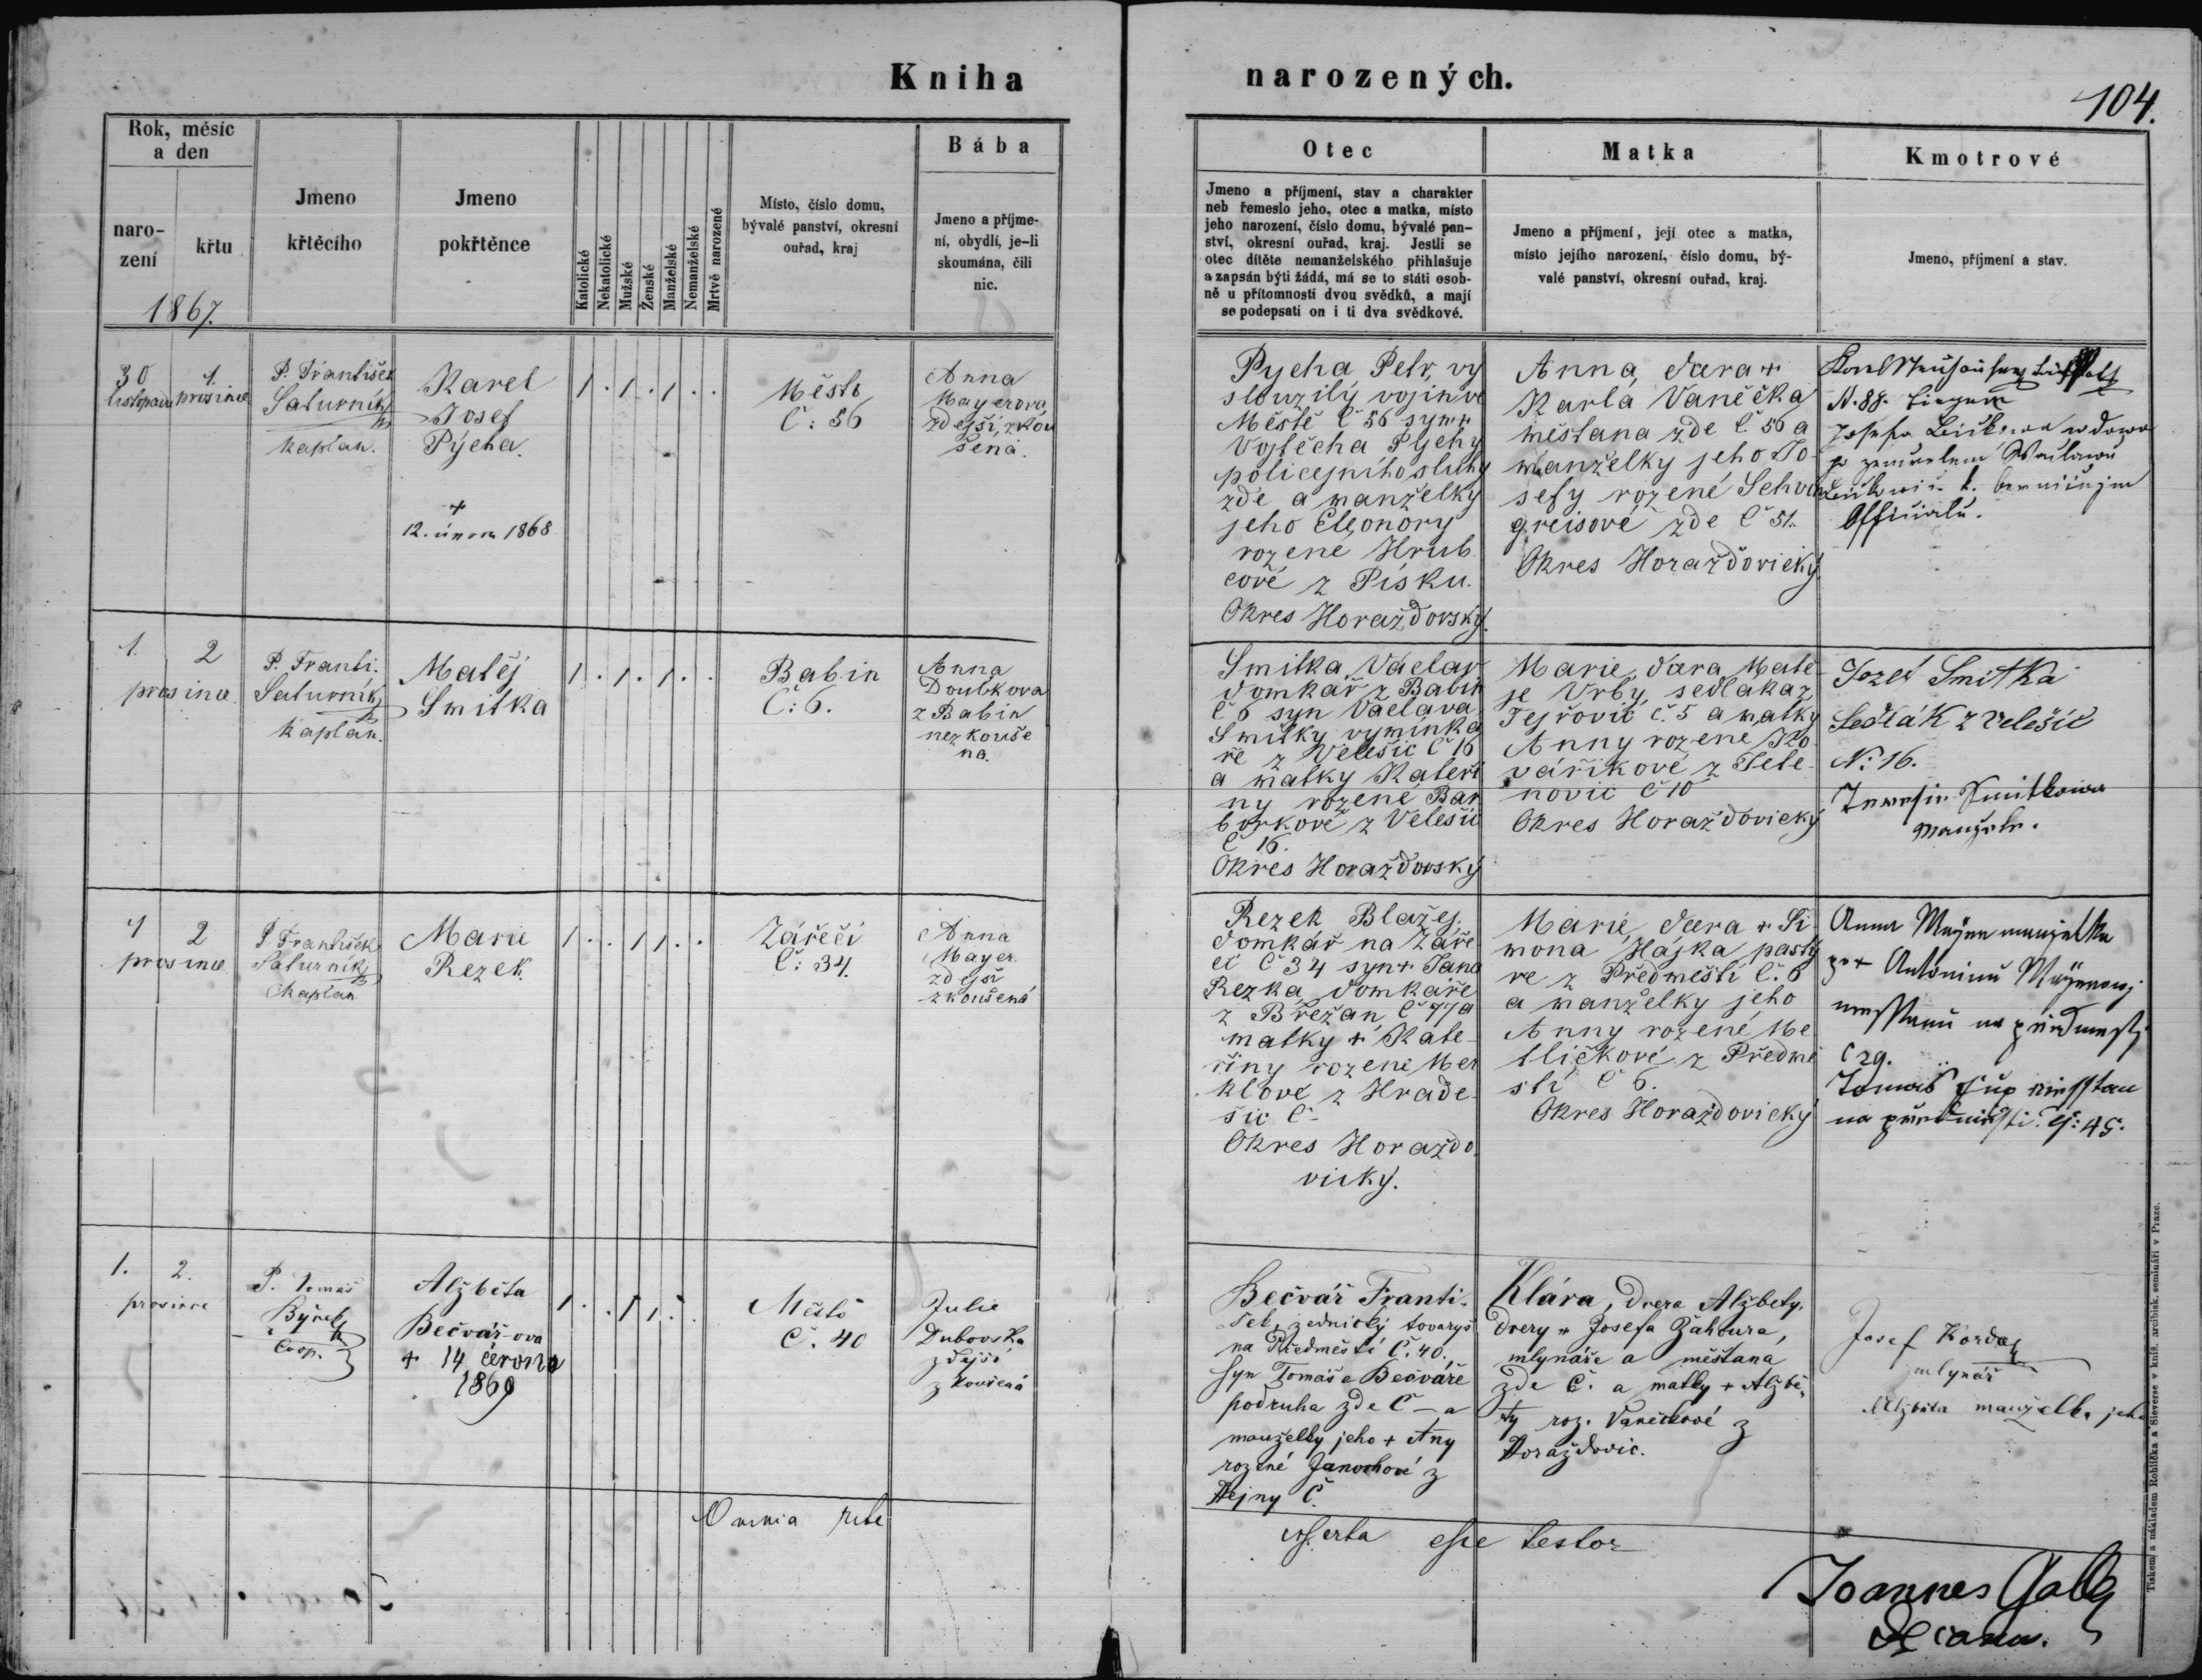 Kniha narozených.
104.
Rok, měsíc
a den
naro-
zení
křtu
1867.
Jmeno
křtěcího
Jmeno
pokřtěnce
Katolické
Nekatolické
Mužské
Ženské
Manželské
Nemanželské
Mrtvě narozené
Místo, číslo domu,
bývalé panství, okresní
ouřad, kraj
Bába
Jmeno a příjme-
ní, obydlí, je-li
skoumána, čili
nic.
Otec
Jmeno a příjmení, stav a charakter
neb řemeslo jeho, otec a matka, místo
jeho narození, číslo domu, bývalé pan-
ství, okresní ouřad, kraj. Jestli se
otec dítěte nemanželského přihlašuje
a zapsán býti žádá, má se to státi osob-
ně u přítomnosti dvou svědků, a mají
se podepsati on i ti dva svědkové.
Matka
Jmeno a příjmení, její otec a matka,
místo jejího narození, číslo domu, bý-
valé panství, okresní ouřad, kraj.
Kmotrové
Jmeno, příjmení a stav.
30 1.
listopadu prosince
P. František
Saturník
kaplan.
Karel
Josef
Pýcha.
+
12. února 1868
1 . 1 . 1 . .
Město
Č: 56
Anna
Mayerová
zdejší, zkou
šená.
Pycha Petr, vy
sloužilý vojín ve
Městě č 56 syn +
Vojtěcha Pychy
policejního sluhy
zde a manželky
jeho Eleonory
rozené Hrub
cové z Písku.
Okres Horažďovský.
Anna, dcera +
Karla Vaněčka
měšťana zde č. 56 a
manželky jeho Jo-
sefy rozené Schva
greisové zde č 51.
Okres Horažďovický.
N. 88.
Josefa
Officiala.
1. 2
prosince
P. Franti.
Saturník
kaplan.
Matěj
Smitka
1 . 1 . 1 . .
Babin
Č: 6.
Anna
Doubkova
z Babin
nezkouše
na.
Smitka Václav
domkář z Babin
č 6 syn Václava
Smitky vymínka
ře z Velešic č 16
a matky Kateři
ny rozené Bar
borkové z Velešic
č 16.
Okres Horažďovský
Marie, dcera Matě
je Vrby, sedláka z
Tejřovic č. 5 a matky
Anny rozené Ko
váříkové z Těte-
novic č 10
Okres Horažďovický
Jozef Smitka
Sedlák z Velešic
N: 16.
Smitkowa
Manžele.
1 2
prosince
P. František
Saturník
Kaplan
Marie
Rezek.
1 . . 1 1 . .
Zářečí
Č: 34.
Anna
Mayer.
zdejší
zkoušená
Rezek Blažej.
domkář na Záře
čí č 34 syn + Jana
Rezka, domkaře
z Břežan č 77 a
matky + Kate-
řiny rozené Mer
klové z Hrade-
šic č -
Okres Horažďo
vicky.
Marie, dcera + Si
mona Hájka pastý
ře z Předměstí č. 6
a manželky jeho
Anny rozené Me
tličkové z Předmě
stí č 6.
Okres Horažďovický
Anna Mayer manželka
po + Antoninu
na
C 29.
Tomaš
na 45.
1. 2.
prosince
P. Tomáš
Býček
Coop.
Alžběta
Bečvář-ova
+ 14 června
1869
1 . . 1 1 . .
Město
č. 40
Julie
Dubovska
zdejší
zkoušená
Bečvář Franti-
šek, zednický tovaryš
na Předměstí č. 40.
syn Tomáše Bečváře
podruha zde č — a
manželky jeho + Any
rozené Janochové z
Hejny č.
Klára, dcera Alžbety,
dcery + Josefa Zahbura,
mlynáře a měšťana
zde č. a matky + Alžbě-
ty roz. Vaněčkové z
Horažďovic.
Josef Korda
mlynář
Alžběta manželka jeho
Omnia rite inserta esse testor
Joannes Gall
Decanus.
Tiskem a nákladem Rohlíčka a Sieverse v kníž. arcibisk. semináři v Praze.